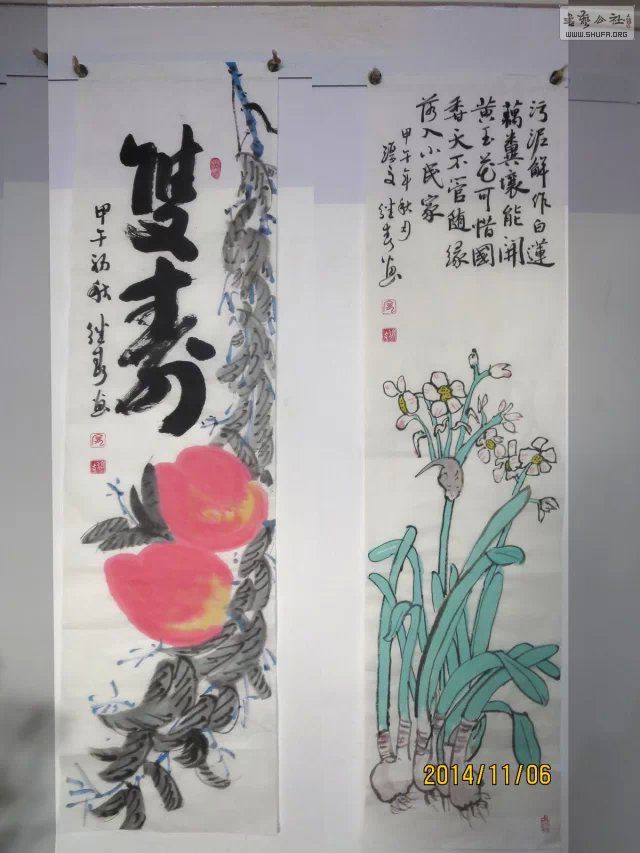 書藝公社
WWW.SHUFA.ORG
雙壽
甲午初秋
污泥解作白蓮
藕糞壤能開
黄玉花可惜國
香天不管随緣
落入小民家
甲午年秋月
2014/11/06